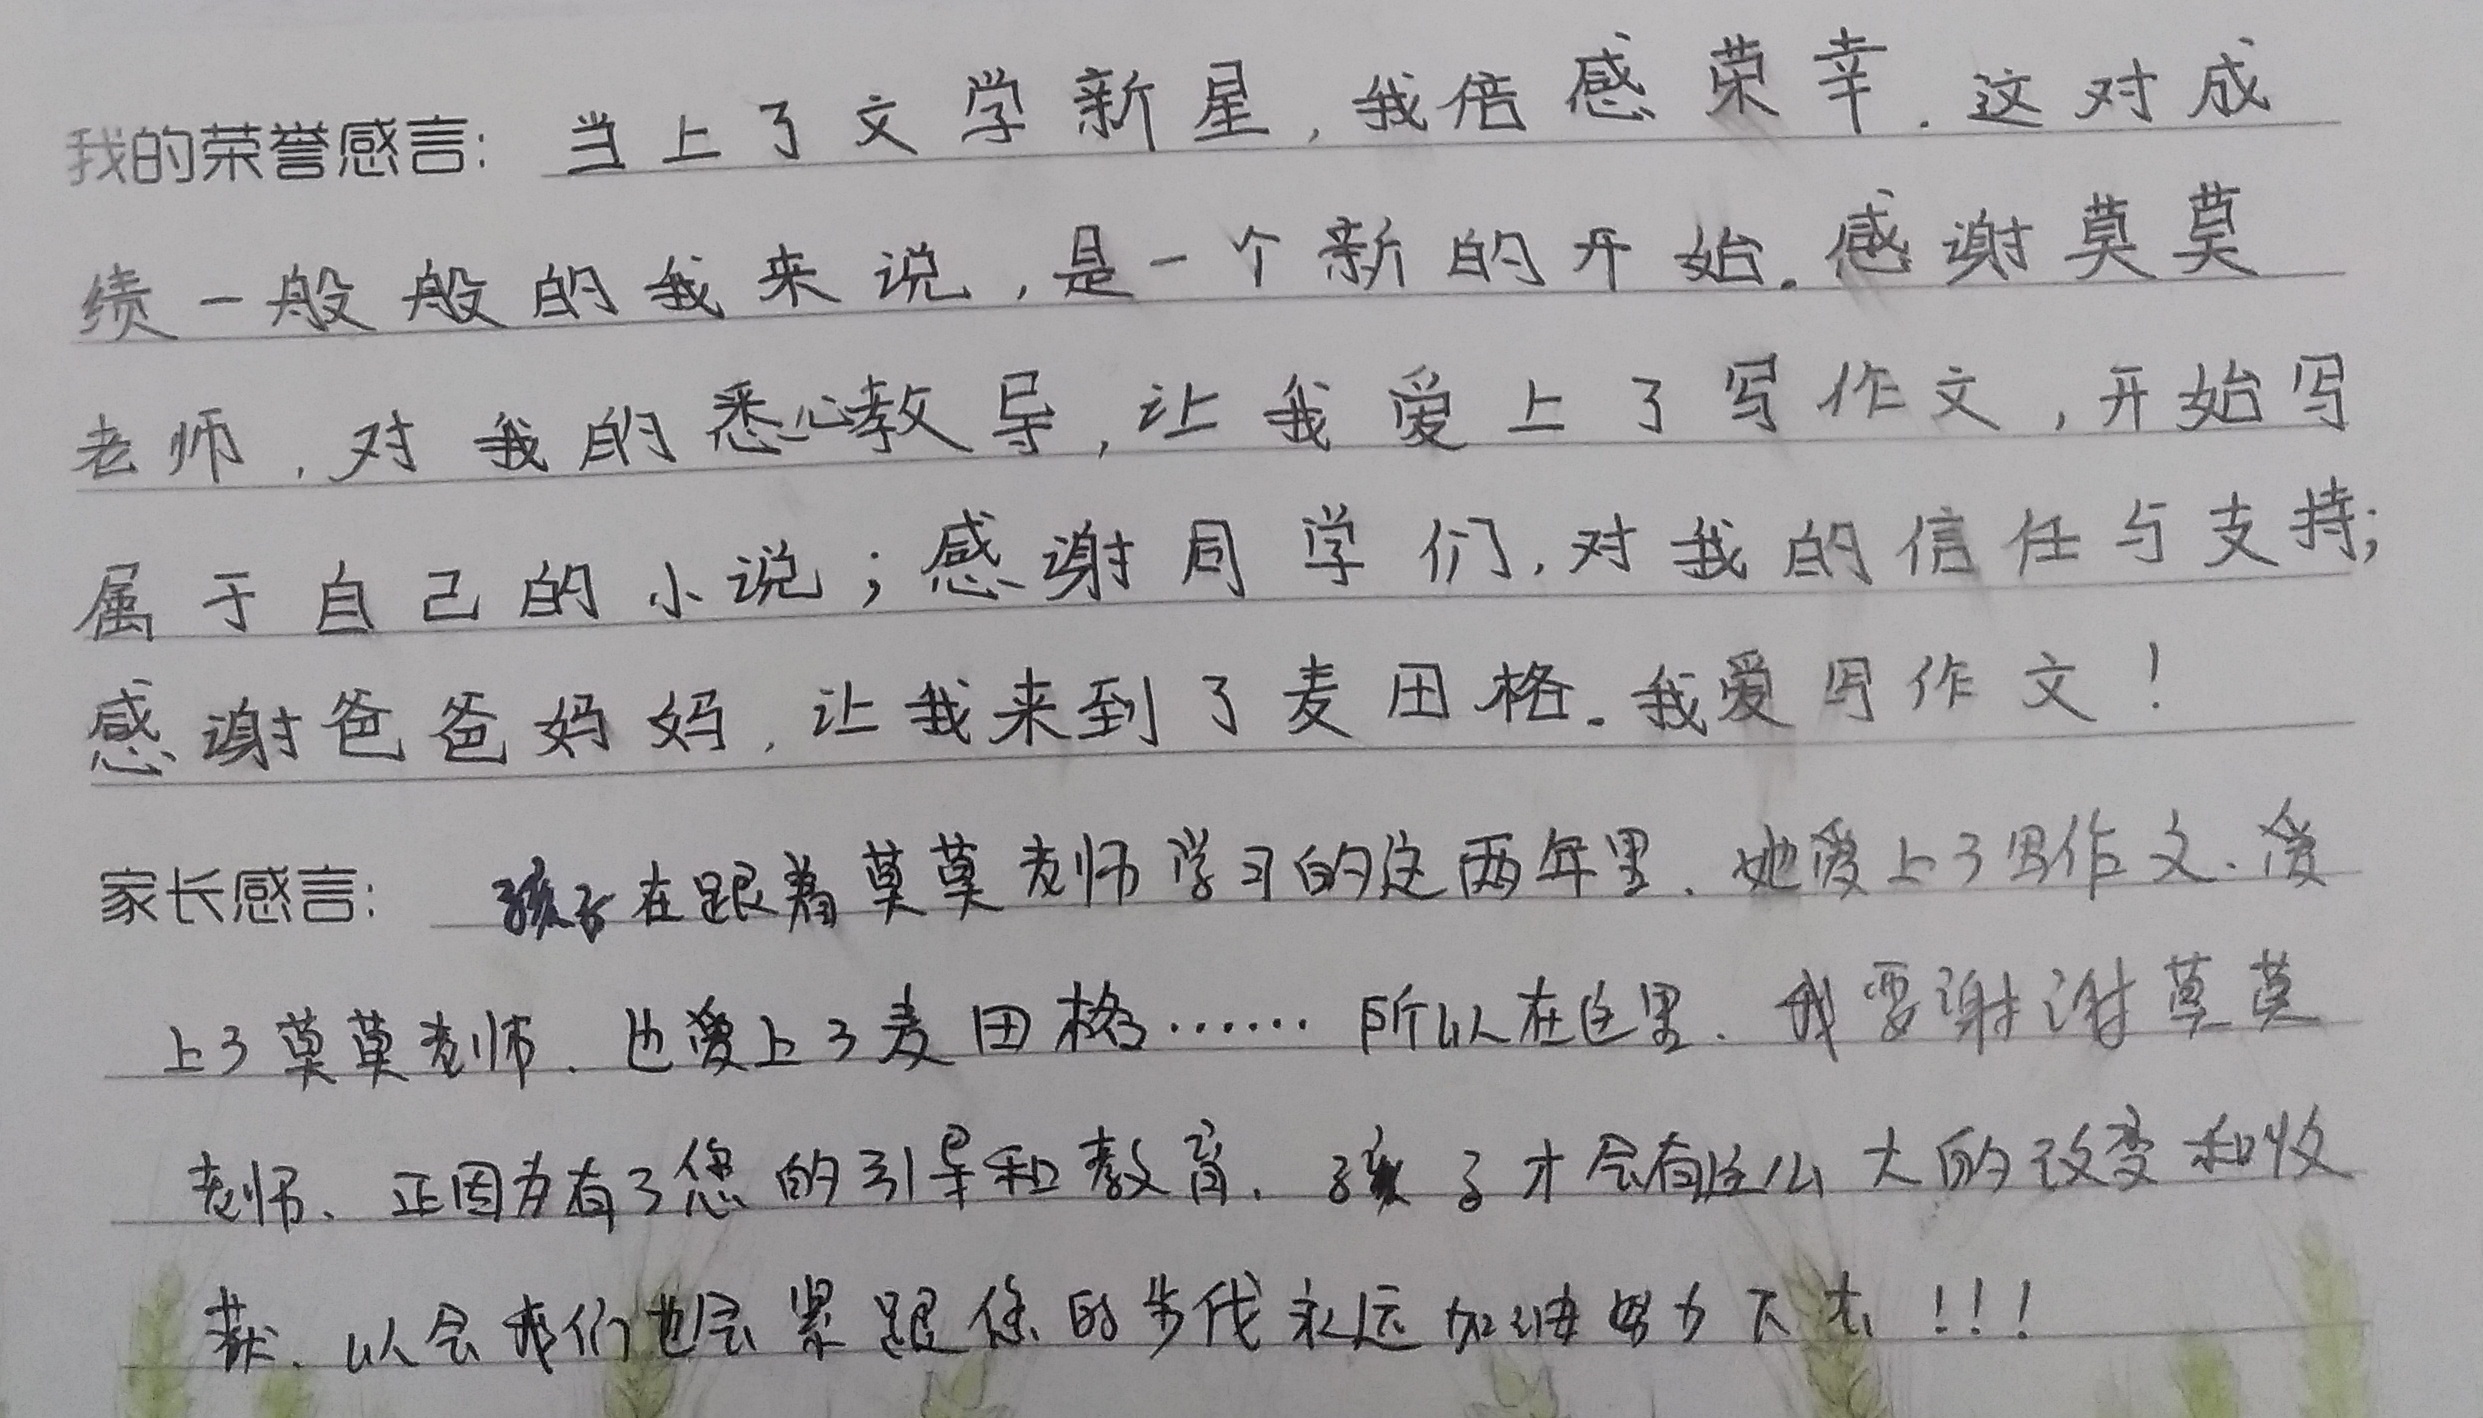 我的荣誉感言：当上了文学新星，我倍感荣幸．这对成
绩一般般的我来说，是一个新的开始。感谢莫莫
老师，对我的悉心教导，让我爱上了写作文，开始写
属于自己的小说；感谢同学们，对我的信任与支持；
感谢爸爸妈妈，让我来到了麦田格。我爱写作文！
家长感言：孩子在跟着莫莫老师学习的这两年里、她爱上了写作文、爱
上了莫莫老师、也爱上了麦田格……所以在这里、我要谢谢莫莫
老师、正因为有了您的引导和教育、孩子才会有这么大的改变和收
获、以会我们也会紧跟你的步伐永远加油努力下去！！！